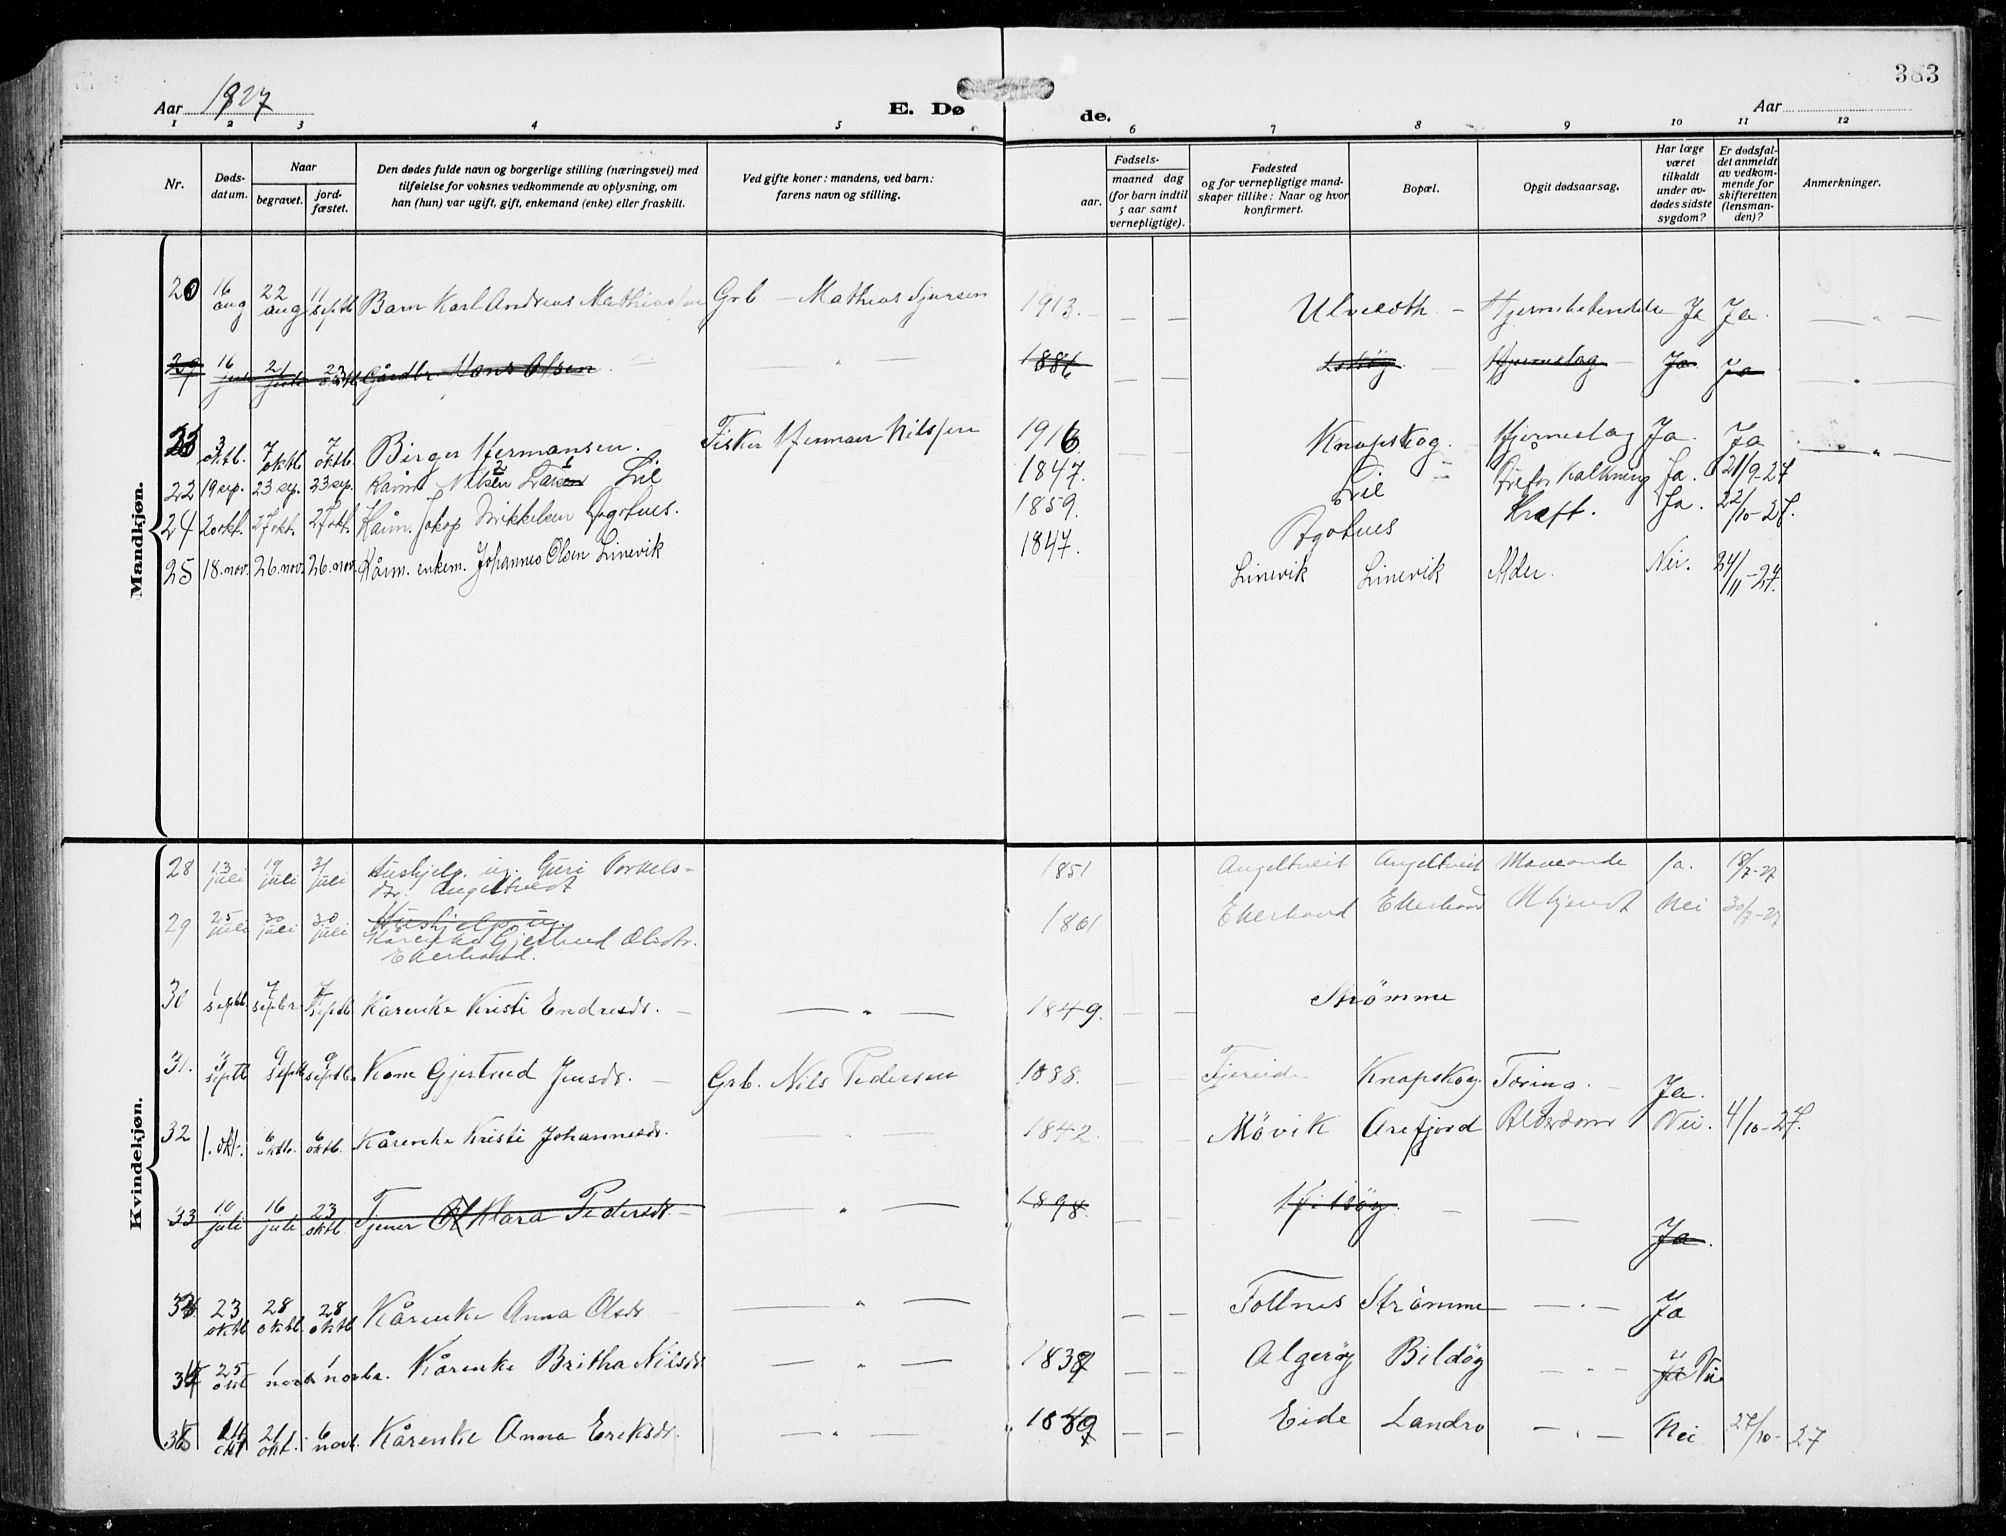 383
Aar 1927
E. Dø de.
Aar
1 2 3 4 5 6 7 8 9 10 11 12
Nr.
Døds-
datum.
Naar
begravet.
jord-
fæstet.
Den dødes fulde navn og borgerlige stilling (næringsvei) med
tilføielse for voksnes vedkommende av oplysning, om
han (hun) var ugift, gift, enkemand (enke) eller fraskilt.
Ved gifte koner: mandens, ved barn:
farens navn og stilling.
Fødsels-
aar.
maaned dag
(for barn indtil
5 aar samt
vernepligtige).
Fødested
og for vernepligtige mand-
skaper tillike: Naar og hvor
konfirmert.
Bopæl.
Opgit dødsaarsag.
Har læge
været
tilkaldt
under av-
dødes sidste
sygdom?
Er dødsfal-
det anmeldt
av vedkom-
mende for
skifteretten
(lensman-
den)?
Anmerkninger.
Mandkjøn.
20 16 aug 22 aug 11 septb Barn Karl Andreas Mathiassen Grb — Mathias Sjursen 1913. — — Ulveseth — Hjernebetendelse Ja Ja. — " —
16 juli 21 juli 23 oktb Gårdbr. Hans Olsen. " — 1886 — — — Hjerneslag — Ja Ja — " —
3 oktb. 7 oktb. 7 oktb. Birger Hermansen. Fisker Herman Nilssen 1916 — — Knapskog. Hjerneslag Ja. Ja — " —
22 19 sep. 23 sep. 23 sep. Kårm. Nilsen Larsen Lie 1847. Lie — Årefor kalkning Ja. 21/9-27
24 20 okt. 27 okt. 27 okt. Kårm. Jakop Mikkelsen Ågotnes. 1859. Ågotnes Kræft. Ja. 22/10-27.
25 18. nov. 26. nov. 26. nov. Kårm. enkem. Johannes Olsen Linevik 1847. Linevik Linevik Alder. Nei. 24/11-27.
Kvindekjøn.
28 13 juli 19 juli 31 juli Hushjelp. ug. Guri Torkels-
dr. Angeltveit 1851 Angeltveit Angeltveit Maveonde Ja. 18/7-27
29 25 juli 30 juli 30 juli Hushjelp ug.
Kårenke Gjertrud Olsdr.
Ekerhovd. 1861 Ekerhovd Ekerhovd Ukjendt Nei 30/7-27
30 1 septb 7 septbr 7 septb Kårenke Kristi Endresdr. — — " — 1849. — — Strømme
31. 3 septb 9 septb 9 septb. Kone Gjertrud Jensdr. — Grb. Nils Pedersen 1888. — — Fjereide Knapskog. — Ja.
32 1. okt. 6 oktb. 6 oktb. Kårenke Kristi Johannesdr. — " — 1842. — — Møvik Arefjord Alderdom Nei. 4/10-27.
33 10 juli 16 juli 23 oktb Tjener Klara Pedersdr. — — " — 1898. — — — — Ja.
34 23 oktb. 28 oktb. 28 oktb Kårenke Anna Olsdr — — " — — — Foltnes Strømme — " — Ja
35 25 okt 1 novb 1 novbr. Kårenke Britha Nilsdr — " — 1837 — — Algerøy Bildøy — " — Ja Nei
36 21 okt. 6 novb. Kårenke Anna Eriksdr. — " — — — Eide Landro — " — Nei 27/10-27